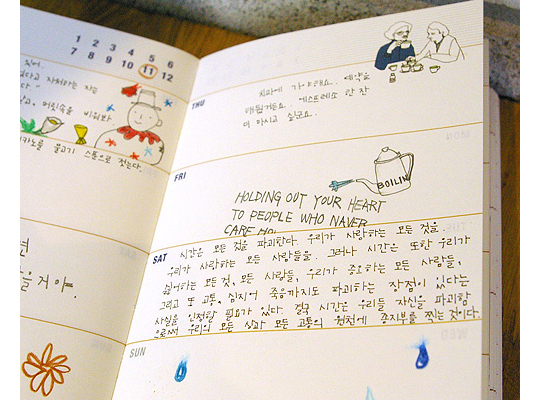 1 2 3 4 5 6
7 8 9 10 11 12
있어.
자처하는 지금
다"
고, 머릿속을 비워봐
카노를 물고기 스푼으로 젓는다.
THU
치과에 가야해요. 예약을
해뒀거든요. 에스프레소 한 잔
더 마시고 싶군요.
FRI
BOILIN
HOLDING OUT YOUR HEART
TO PEOPLE WHO NAVER
CARE HO
SAT
시간은 모든 것을 파괴한다. 우리가 사랑하는 모든 것을.
우리가 사랑하는 모든 사람들을. 그러나 시간은 또한 우리가
싫어하는 모든 것, 모든 사람들, 우리가 증오하는 모든 사람들,
그리고 또 고통, 심지어 죽음까지도 파괴하는 장점이 있다는
사실을 인정할 필요가 있다. 결국 시간은 우리들 자신을 파괴함
으로써 우리의 모든 상과 모든 고통의 원천에 종지부를 찍는 것이다.
면
을거야.
SUN